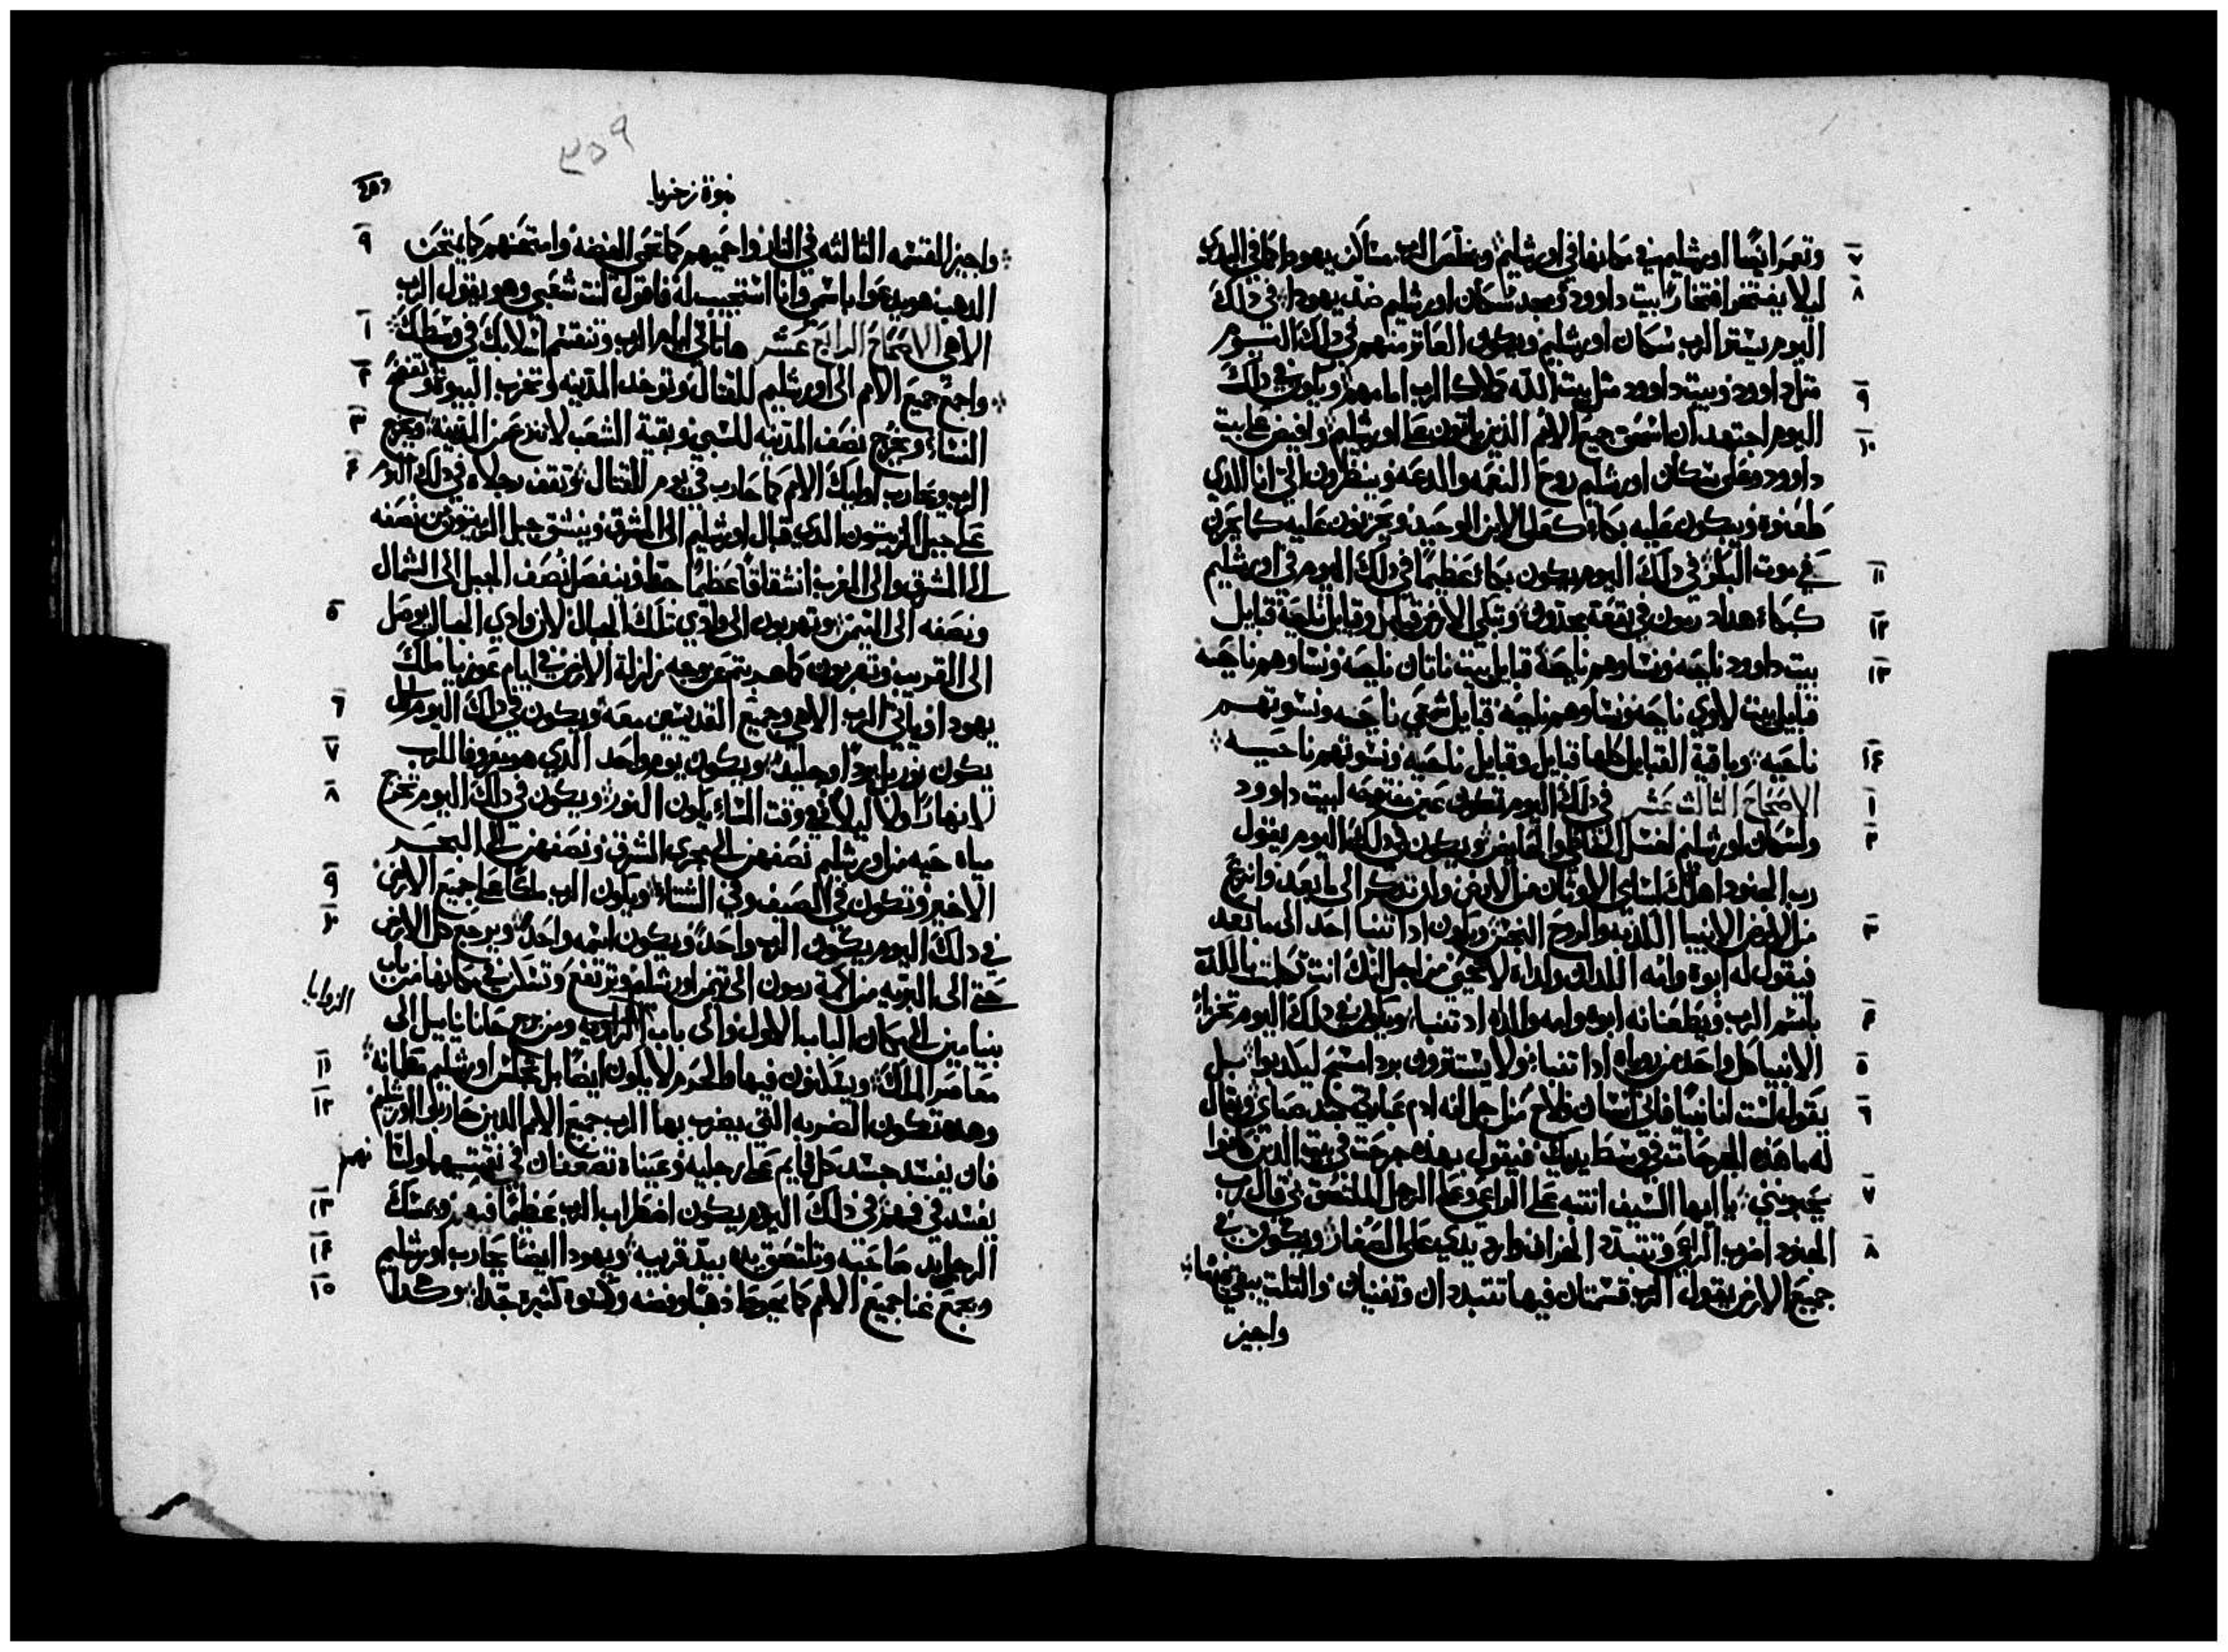 وتعمر ايضًا اورشليم في مكانها في اورشليم ويخلص الرب مساكن يهودا كما في البدي
٧
ليلا يفتخر افتخارًا بيت داوود ومجد سكان اورشليم ضد يهودا في ذلك
٨
اليوم يستر الرب سكان اورشليم ويكون العاثر منهم في ذلك اليوم
مثل داوود وبيت داوود مثل بيت الله كملاك الرب امامهم ويكون في ذلك
٩
اليوم اجتهد ان اسحق جميع الامم الذين ياتون على اورشليم وافيض على بيت
١٠
داوود وعلى سكان اورشليم روح النعمه والدعه وينظرون الي انا الذي
طعنوه ويبكون عليه بكاء كعلى الابن الوحيد ويحزنون عليه كما يحزن
في موت البكر في ذلك اليوم يكون بكاءً عظيمًا في ذلك اليوم في اورشليم
١١
كبكاء هداد رمون في بقعة مجدون وتبكي الارض قبايل وقبايل ناحية قبايل
١٢
بيت داوود ناحيه ونساوهم ناحية قبايل بيت ناتان ناحيه ونساوهم ناحيه
١٣
قبايل بيت لاوي ناحيه ونساوهم ناحيه قبايل شمعي ناحيه ونسوتهم
ناحيه وباقية القبايل كلها قبايل وقبايل ناحيه ونسوتهم ناحيه
١٤
الاصحاح الثالث عشر في ذلك اليوم تكون عين مفتوحه لبيت داوود
١
ولسكان اورشليم لغسل الخاطي والحايض ويكون في ذلك اليوم يقول
٢
رب الجنود اهلك اسامي الاوثان من الارض ولن تذكر الى ما بعد وانزع
من الارض الانبيا الكذبه والروح النجس ويكون اذا تنبا احد الى ما بعد
٣
فيقول له ابوه وامه اللذان ولداه لا تحيى من اجل انك انت تكلمت بالكذب
باسم الرب ويطعنانه ابوه وامه والداه اذ تنبا ويكون في ذلك اليوم تخزا
٤
الانبيا كل واحد من روياه اذا تنبا ولا يستترون بردا مسح ليكذبوا بل
٥
يقوله لست انا نبيًا فاني انسان فلاح من اجل انه ادم عبارتي منذ صباي ويقال
٦
له ما هذه الجراحات في وسط يديك فيقول بهذه جرحت في بيت الذين كانوا
يحبونني يا ايها السيف انتبه على الراعي وعلى الرجل الملتصق بي قال رب
٧
الجنود اضرب الراعي وتتبدد الخراف وارد يدي على الصغار ويكون في
٨
جميع الارض يقول الرب قسمتان فيها تتبددان وتفنيان والثلث يبقى فيها
واجيز
٢٥٩
نبوة زخريا
واجيز القسمه الثالثه في النار واحميهم كما تحمى الفضه وامتحنهم كما يمتحن
٩
الذهب هو يدعوا باسمي وانا استجيب له فاقول انت شعبي وهو يقول الرب
الاهي الاصحاح الرابع عشر ها تاتي ايام الرب وتنقسم اسلابك في وسطك
١
واجمع جميع الامم الى اورشليم للقتال وتوخذ المدينه وتخرب البيوت وتفضح
٢
النساء ويخرج نصف المدينه للسبي وبقية الشعب لا تنزع من المدينه ويخرج
٣
الرب ويحارب اوليك الامم كما حارب في يوم القتال وتقف رجلاه في ذلك اليوم
٤
على جبل الزيتون الذي قبال اورشليم الى المشرق وينشق جبل الزيتون من نصفه
الى المشرق والى الغرب انشقاقًا عظيمًا جدًا وينفصل نصف الجبل الى الشمال
ونصفه الى التيمن وتهربون الى وادي تلك الجبال لان وادي الجبال يوصل
٥
الى القريب وتهربون كما هربتم من وجه زلزلة الارض في ايام عوزيا ملك
يهودا وياتي الرب الاهي وجميع القديسين معه ويكون في ذلك اليوم ليس
٦
يكون نور بل بردًا وجليد ويكون يوم واحد الذي هو معروفا للرب
٧
لا نهارًا ولا ليلًا في وقت المساء يكون النور ويكون في ذلك اليوم تخرج
٨
مياه حيه من اورشليم نصفهن الى بحر الشرق ونصفهن الى البحر
الاخير وتكون في الصيف وفي الشتاء ويكون الرب ملكًا على جميع الارض
٩
في ذلك اليوم يكون الرب واحد ويكون اسمه واحد ويرجع كل الارض
١٠
حتى الى البريه من اكمة رمون الى تيمن اورشليم وترتفع وتسكن في مكانها من باب
بنيامين الى مكان الباب الاول والى باب الزاويه ومن برج حانانيايل الى
الزوايا
معاصر الملك ويسكنون فيها والحرم لا يكون ايضًا بل تجلس اورشليم مطمانه
١١
وهذه تكون الضربه التي يضرب بها الرب جميع الامم الذين حاربوا اورشليم
١٢
فان يفسد جسد كل قايم على رجليه وعيناه تضعفان في نقبتيهما ولسانهم
يفسد في فمهم في ذلك اليوم يكون اضطراب الرب عظيمًا فيهم ويمسك
١٣
الرجل يد صاحبه وتلتصق يده بيد قريبه ويهودا ايضًا يحارب اورشليم
١٤
ويجمع غنا جميع الامم كما يحوط ذهبًا وفضه وكسوة كثيرة جدًا وكذا
١٥